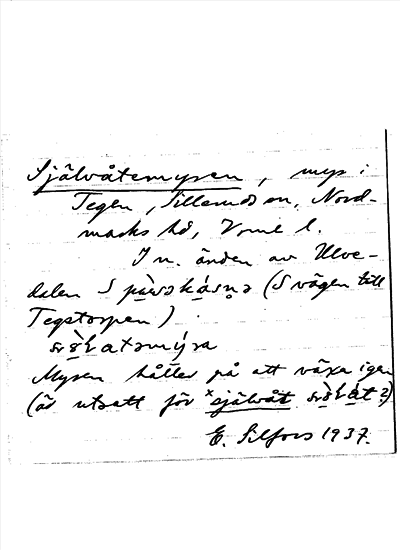 Självåtemyren, myr i
Tegen, Sillerud sn, Nord-
marks hd, Vrml l.
I n. änden av Ulve-
dalen S (S vägen till
Tegstorpen).
Myren håller på att växa igen
(är utsatt för *självåt ?)
E. Silfors 1937.